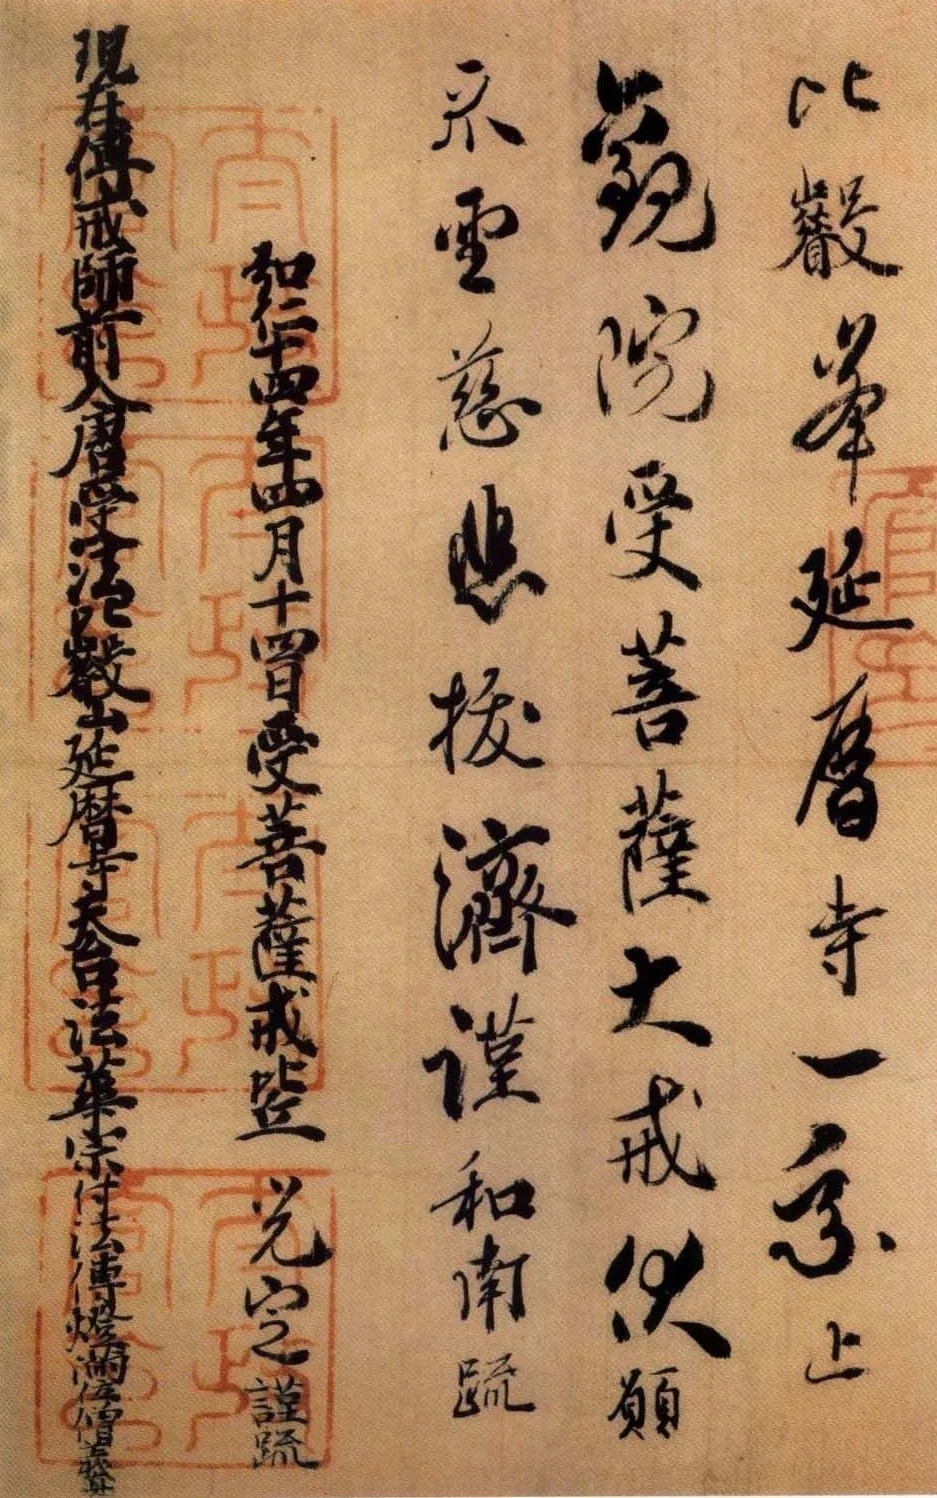 比叡峯延曆寺一乘止
觀院受菩薩大戒伏願
示垂慈悲拔濟謹和南疏
弘仁十四年四月十四日受菩薩戒比丘 光定謹疏
現在傳戒師前入唐受法比叡山延曆寺天台法華宗付法傳燈滿位僧義眞